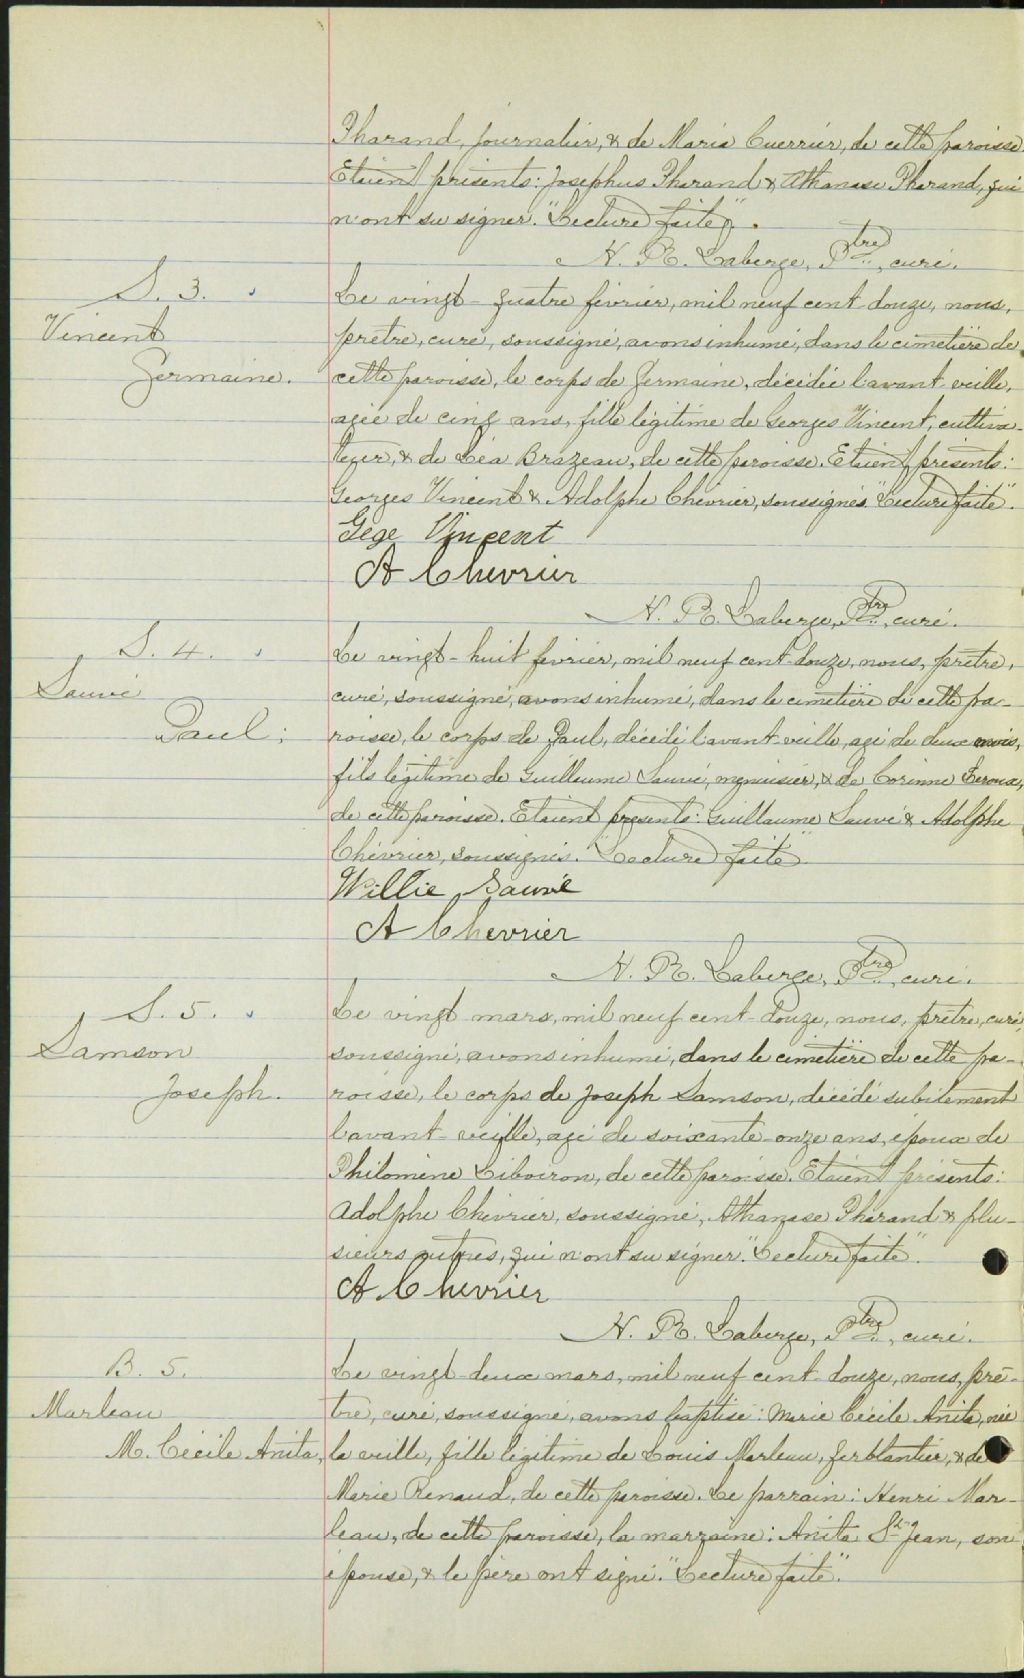 Pharand, journalier, & de Maria Cuerrier, de cette paroisse.
Etaient présents: Josephus Pharand & Athanase Pharand, qui
n'ont su signer. "Lecture faite".
N. R. Laberge, Ptre, curé.
S. 3.
Vincent
Germaine.
Le vingt-quatre février, mil neuf cent-douze, nous,
prêtre, curé, soussigné, avons inhumé, dans le cimetière de
cette paroisse, le corps de Germaine, décédée l'avant-veille,
agée de cinq ans, fille légitime de Georges Vincent, cultiva-
teur, & de Léa Brazeau, de cette paroisse. Etaient présents:
Georges Vincent & Adolphe Chévrier, soussignés. "Lecture faite".
Gège Vincent
A Chevrier
N. R. Laberge, Ptre, curé.
S. 4.
Sauvé
Paul;
Le vingt-huit février, mil neuf cent-douze, nous, prêtre,
curé, soussigné, avons inhumé, dans le cimetière de cette pa-
roisse, le corps de Paul, décédé l'avant-veille, agé de deux mois,
fils légitime de Guillaume Sauvé, menuisier, & de Corinne Leroux,
de cette paroisse. Etaient présents: Guillaume Sauvé & Adolphe
Chévrier, soussignés. "Lecture faite"
Willie Sauvé
A Chevrier
N. R. Laberge, Ptre, curé.
S. 5.
Samson
Joseph.
Le vingt mars, mil neuf cent-douze, nous, prêtre, curé,
soussigné, avons inhumé, dans le cimetière de cette pa-
roisse, le corps de Joseph Samson, décédé subitement
l'avant-veille, agé de soixante-onze ans, époux de
Philomène Liboiron, de cette paroisse. Etaient présents:
Adolphe Chévrier, soussigné, Athanase Pharand & plu-
sieurs autres, qui n'ont su signer. "Lecture faite".
A Chevrier
N. R. Laberge, Ptre, curé.
B. 5.
Marleau
M. Cécile Anita,
Le vingt-deux mars, mil neuf cent-douze, nous, prê-
tre, curé, soussigné, avons baptisé: Marie Cécile Anita, née
la veille, fille légitime de Louis Marleau, ferblantier, & de
Marie Renaud, de cette paroisse. Le parrain: Henri Mar-
leau, de cette paroisse, la marraine: Anita St-Jean, son
épouse, & le père ont signé. "Lecture faite".